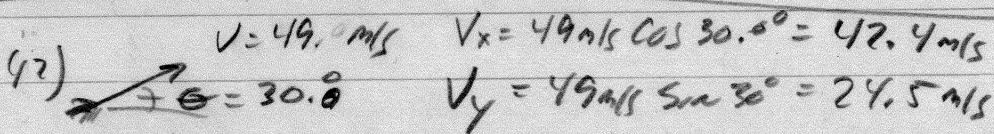 42) V = 49. m/s Vx = 49 m/s Cos 30.0° = 42.4 m/s
θ = 30.0° Vy = 49 m/s Sin 30° = 24.5 m/s